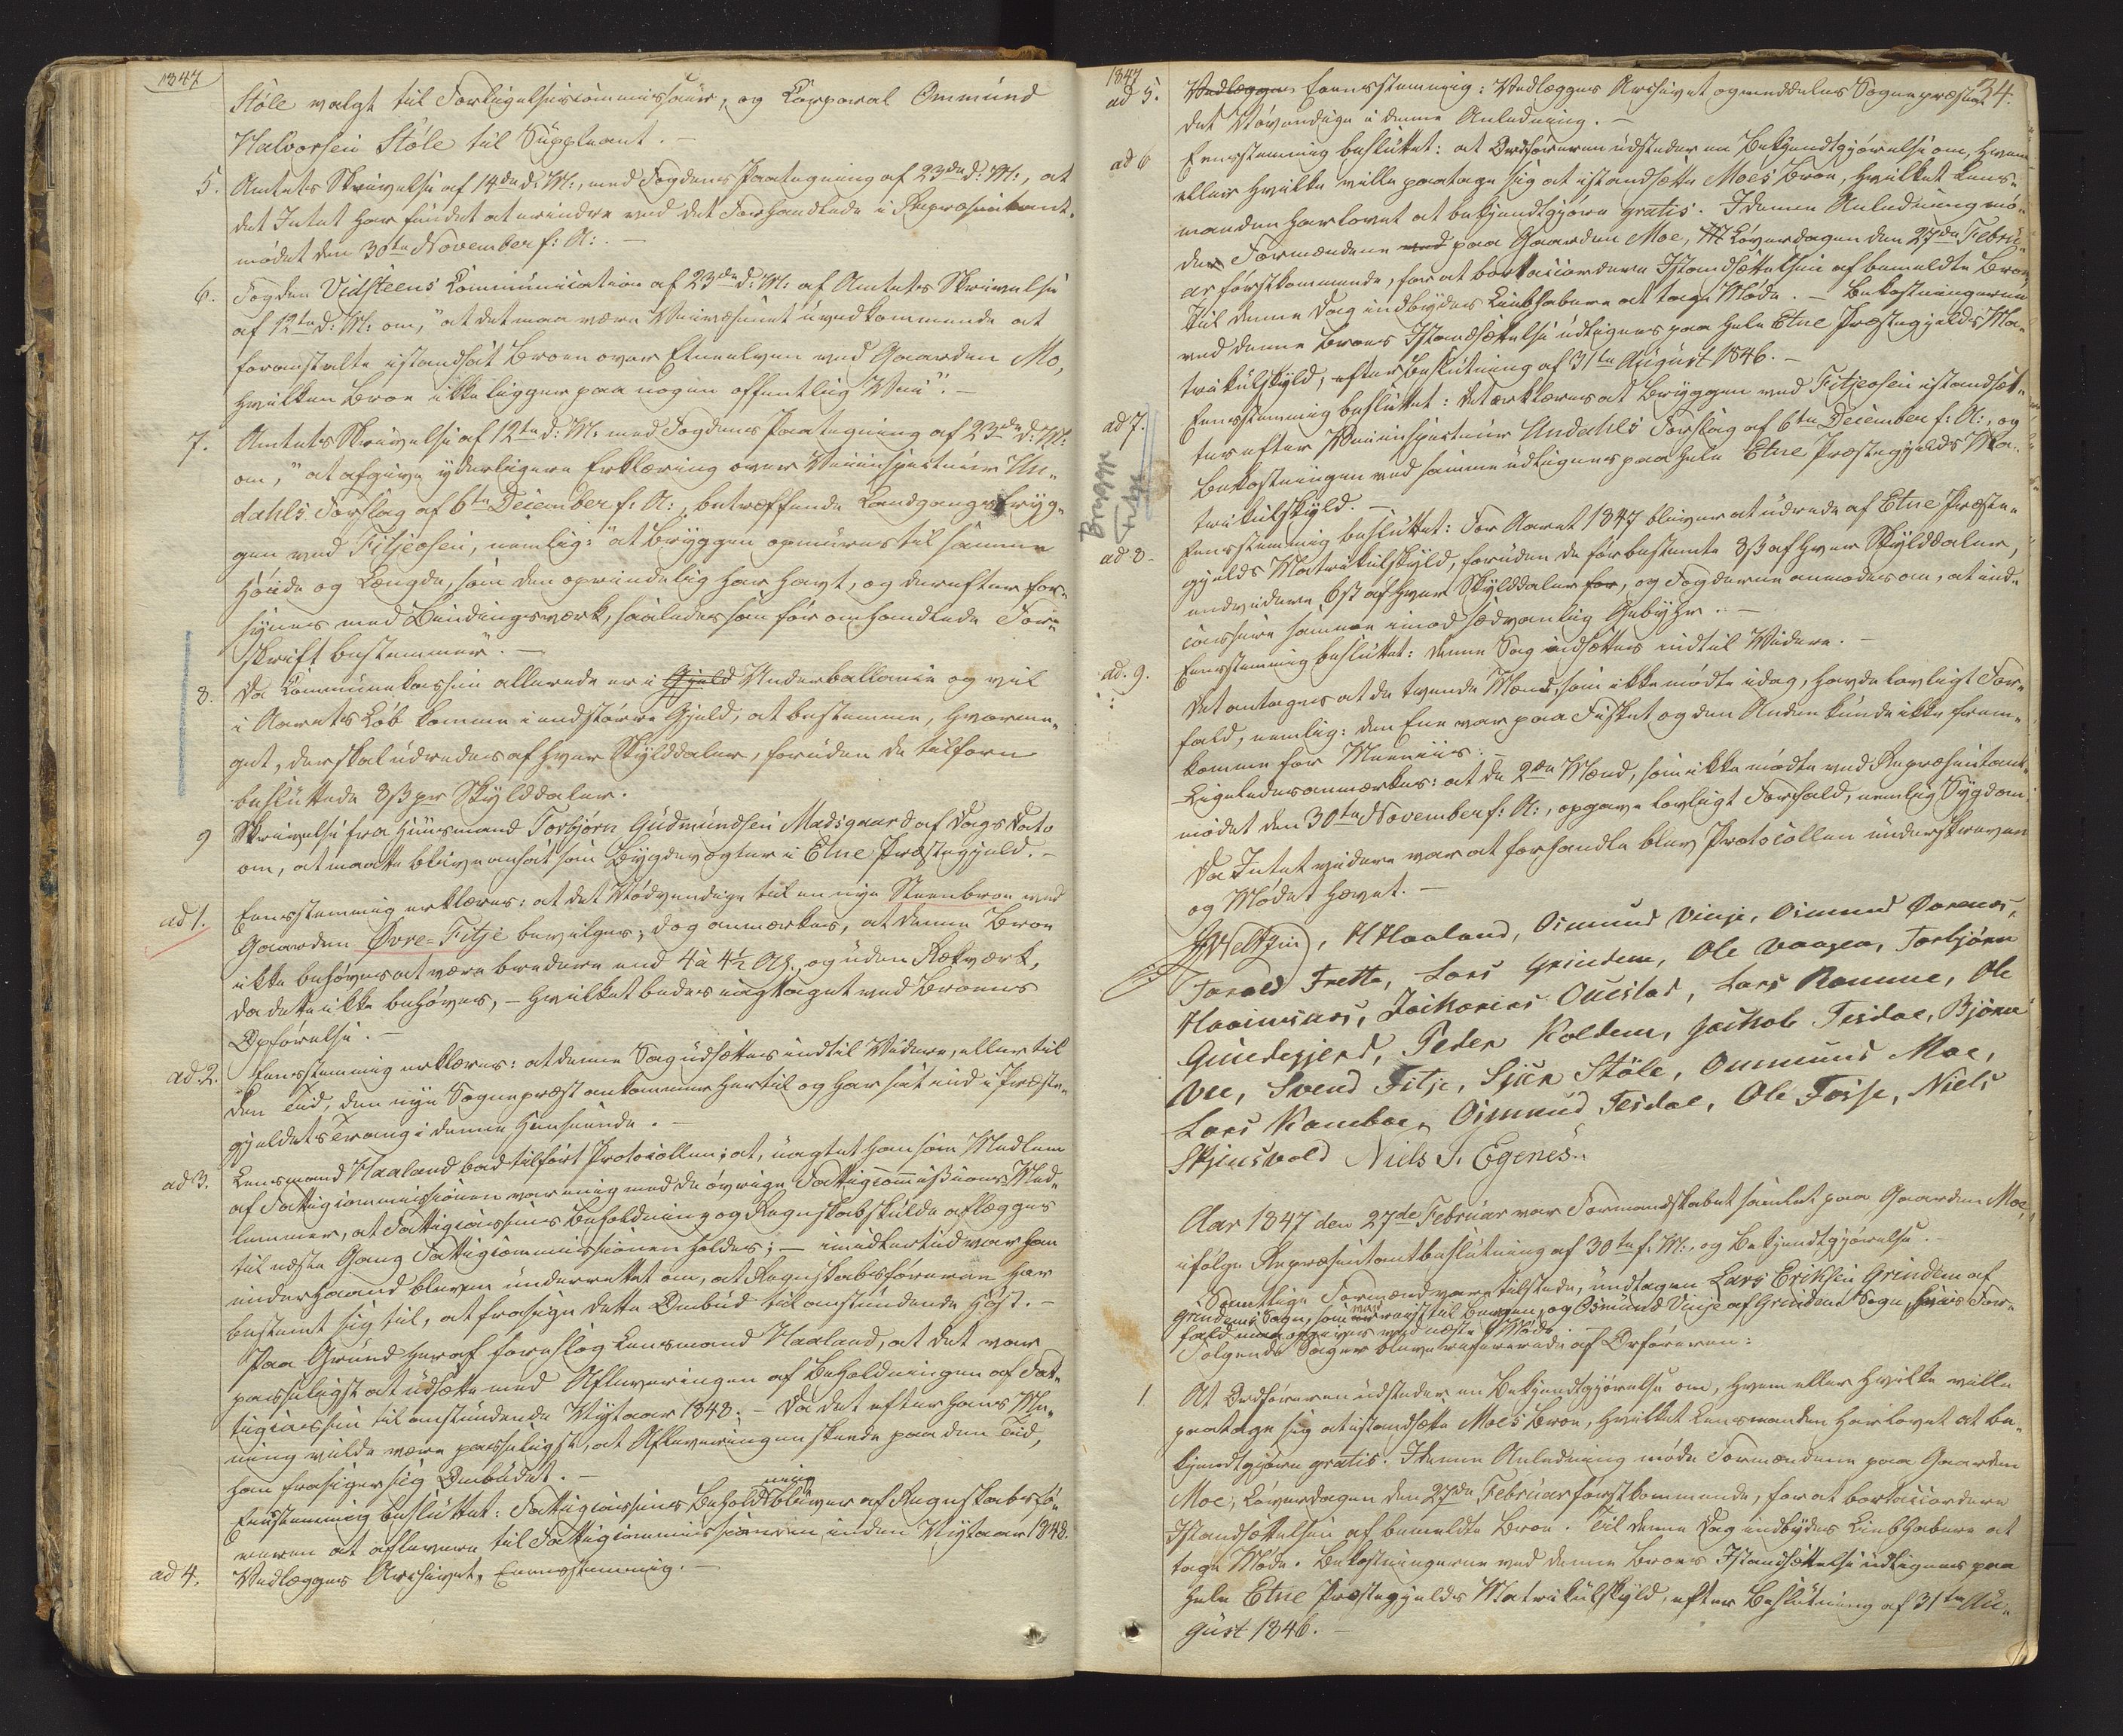 1847
Støle valgt til Forligelsescommissair, og Corporal Ommund
Halvorsen Støle til Suppleant. –
5. Amtets Skrivelse af 14de d: M:, med Fogdens Paategning af 23de d: M:, at
det Intet har fundet at erindre ved det Forhandlede i Repræsentant-
mødet den 30te November f: A:. –
6. Fogden Vidsteens Communication af 23de d: M: af Amtets Skrivelse
af 12te d: M: om, "at det maa være Veivæsenet uvedkommende at
foranstalte istandsat Broen over Etneelven ved Gaarden Mo,
hvilken Broe ikke ligger paa nogen offentlig Vei". –
7. Amtets Skrivelse af 12te d: M: med Fogdens Paategning af 23de d: M:
om, "at afgive yderligere Erklæring over Veiinspecteur Un-
dahls Forslag af 6te December f: A:, betræffende Landgangsbryg-
gen ved Fitjeosen, nemlig: "at Bryggen opmures til samme
Høide og Længde, som den oprindelig har havt, og derefter for-
synes med Bindingsværk, saaledes som før omhandlede For-
skrift bestemmer". –
8. Da Communekassen allerede er i Gjeld Underballance og vil
i Aarets Løb komme i endstørre Gjeld, at bestemme, hvorme-
get, der skal udredes af hver Skylddaler, foruden de tilforn
besluttede 8 ß pr Skylddaler.
9 Skrivelse fra Huusmand Torbjørn Gudmundsen Madsgaard af Dags Dato
om, at maatte blive ansat som Bygdevægter i Etne Præstegjeld. –
ad 1. Eensstemmig erklæres: at det Nødvendige til en nye Steenbroe ved
Gaarden Øvre-Fitje bevilges; dog anmærkes, at denne Broe
ikke behøves at være bredere end 4 à 4½ Al:, og uden Rækværk,
da dette ikke behøves, – hvilket bedes iagttaget ved Broens
Opførelse. –
ad. 2. Eensstemmig erklæres: at denne Sag udsættes indtil Videre, eller til
den Tid, den nye Sognepræst ankommer hertil og har sat ind i Præste-
gjeldets Trang i denne Henseende. –
ad 3. Lensmand Haaland bad tilført Protocollen; at, uagtet han som Medlem
af Fattigcommissionen var enig med de øvrige Fattigcommissions Med-
lemmer, at Fattigcassens Beholdning og Regnskab skulde aflægges
til næste Gang Fattigcommissionen holdes; – imidlertid var han
underhaand bleven underrettet om, at Regnskabsføreren har
bestemt sig til, at frasige dette Ombud til anstundende Høst. –
Paa Grund heraf foreslog Lensmand Haaland, at det var
passeligst at udsætte med Afleveringen af Beholdningen af Fat-
tigcassen til anstundende Nytaar 1848; – Da det efter hans Me-
ning vilde være passeligst, at Afleveringen skeede paa den Tid,
han frasiger sig Ombudet. –
Eensstemmig besluttet: Fattigcassens Beholdning bliver af Regnskabsfø-
reren at aflevere til Fattigcommissionen inden Nytaar 1848.
ad 4. Vedlægges Archivet, Eensstemmig. –
34.
1847
ad 5. Vedlægges Eensstemmig: Vedlægges Archivet og meddeles Sognepræsten
det Nøvendige i denne Anledning. –
ad 6 Eensstemmig besluttet: at Ordføreren udsteder en Bekjendtgjørelse om, Hvem
eller hvilke ville paatage sig at istandsætte Moes Broe, hvilket Lens-
manden har lovet at bekjendtgjøre gratis. I denne Anledning mø-
der Formændene ved paa Gaarden Moe, Løverdagen den 27de Febru-
ar førstkommende, for at bortaccordere Istandsættelsen af bemeldte Broe,
Til denne Dag indbydes Liebhabere at tage Møde. – Bekostningerne
ved denne Broes Istandsættelse udlignes paa hele Etne Præstegjelds Ma-
trikulskyld, efter Beslutning af 31te August 1846. –
ad 7. Eensstemmig besluttet: det erklæres at Bryggen ved Fitjeosen istandsæt-
tes efter Veiinspecteur Undahls Forslag af 6te December f: A:, og
Bekostningen ved samme udlignes paa hele Etne Præstegjelds Ma-
trikulskyld. –
Brygge
Fitje
ad 8 - Eensstemmig besluttet: For Aaret 1847 bliver at udrede af Etne Præste-
gjelds Matrikulskyld, foruden de før bestemte 8 ß af hver Skylddaler,
endvidere 6 ß af hver Skylddaler for, og Fogderne anmodes om, at ind-
cassere samme imod sædvanlig Gebyhr. –
ad. 9. Eensstemmig besluttet: denne Sag udsættes indtil Videre. –
Det antages at de tvende Mænd, som ikke mødte idag, havde lovligt For-
fald, nemlig: den Ene var paa Fisket og den Anden kunde ikke frem-
komme for Meeniis. –
Ligeledes anmærkes: at de 2de Mænd, som ikke mødte ved Repræsentant-
mødet den 30te November f: A:, opgave lovligt Forfald, nemlig Sygdom.
Da Intet videre var at forhandle blev Protocollen underskreven
og Mødet hævet. –
HWeltzin, H Haaland, Osmund Vinje, Osmund Øxenæs,
Torald Frette, Lars Grindem, Ole Vaagen, Torbjørn
Haaimsnes, Zacharias Ouestad, Lars Ramme, Ole
Gundegjerd, Peder Koldem, Jachob Tesdal, Bjørn
Vee, Svend Fitje, Sjur Støle, Ommund Moe,
Lars Kamboe, Osmund Tesdal, Ole Fosse, Niels
Skjensvold Niels S. Egenes.
Aar 1847 den 27de Februar var Formandskabet samlet paa Gaarden Moe,
ifølge Repræsentantbeslutning af 30te f: M:, og Bekjendtgjørelse. –
Samtlige Formænd vare tilstede, undtagen Lars Eriksen Grindem af
Grindems Sogn, som var reist til Bergen, og Osmund Vinje af Grindems Sogn, hvis For-
fald maa opgives ved næste Møde.
Følgende Sager bleve refererede af Orføreren:
1 At Ordføreren udsteder en Bekjendtgjørelse om, hvem eller hvilke ville
paatage sig at istandsætte Moes Broe, hvilket Lensmanden har lovet at be-
kjendtgjøre gratis. I denne Anledning møde Formændene paa Gaarden
Moe, Løverdagen den 27de Februar førstkommende, for at bortaccordere
Istandsættelsen af bemeldte Broe. Til denne Dag indbydes Liebhabere at
tage Møde. Bekostningerne ved denne Broes Istandsættelse udlignes paa
hele Etne Præstegjelds Matrikulskyld, efter Beslutning af 31te Au-
gust 1846. –